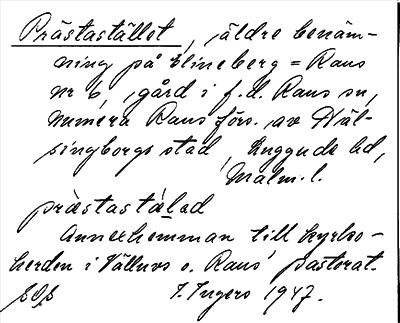 Prästastället, äldre benäm-
ning på Elineberg = Raus
nr 6, gård i f.d. Raus sn,
numera Raus förs. av Häl-
singborgs stad, Luggude hd,
Malm. l.
præstastálad
Annexhemman till kyrko-
herden i Välluvs o. Raus' pastorat.
I. Ingers 1947.